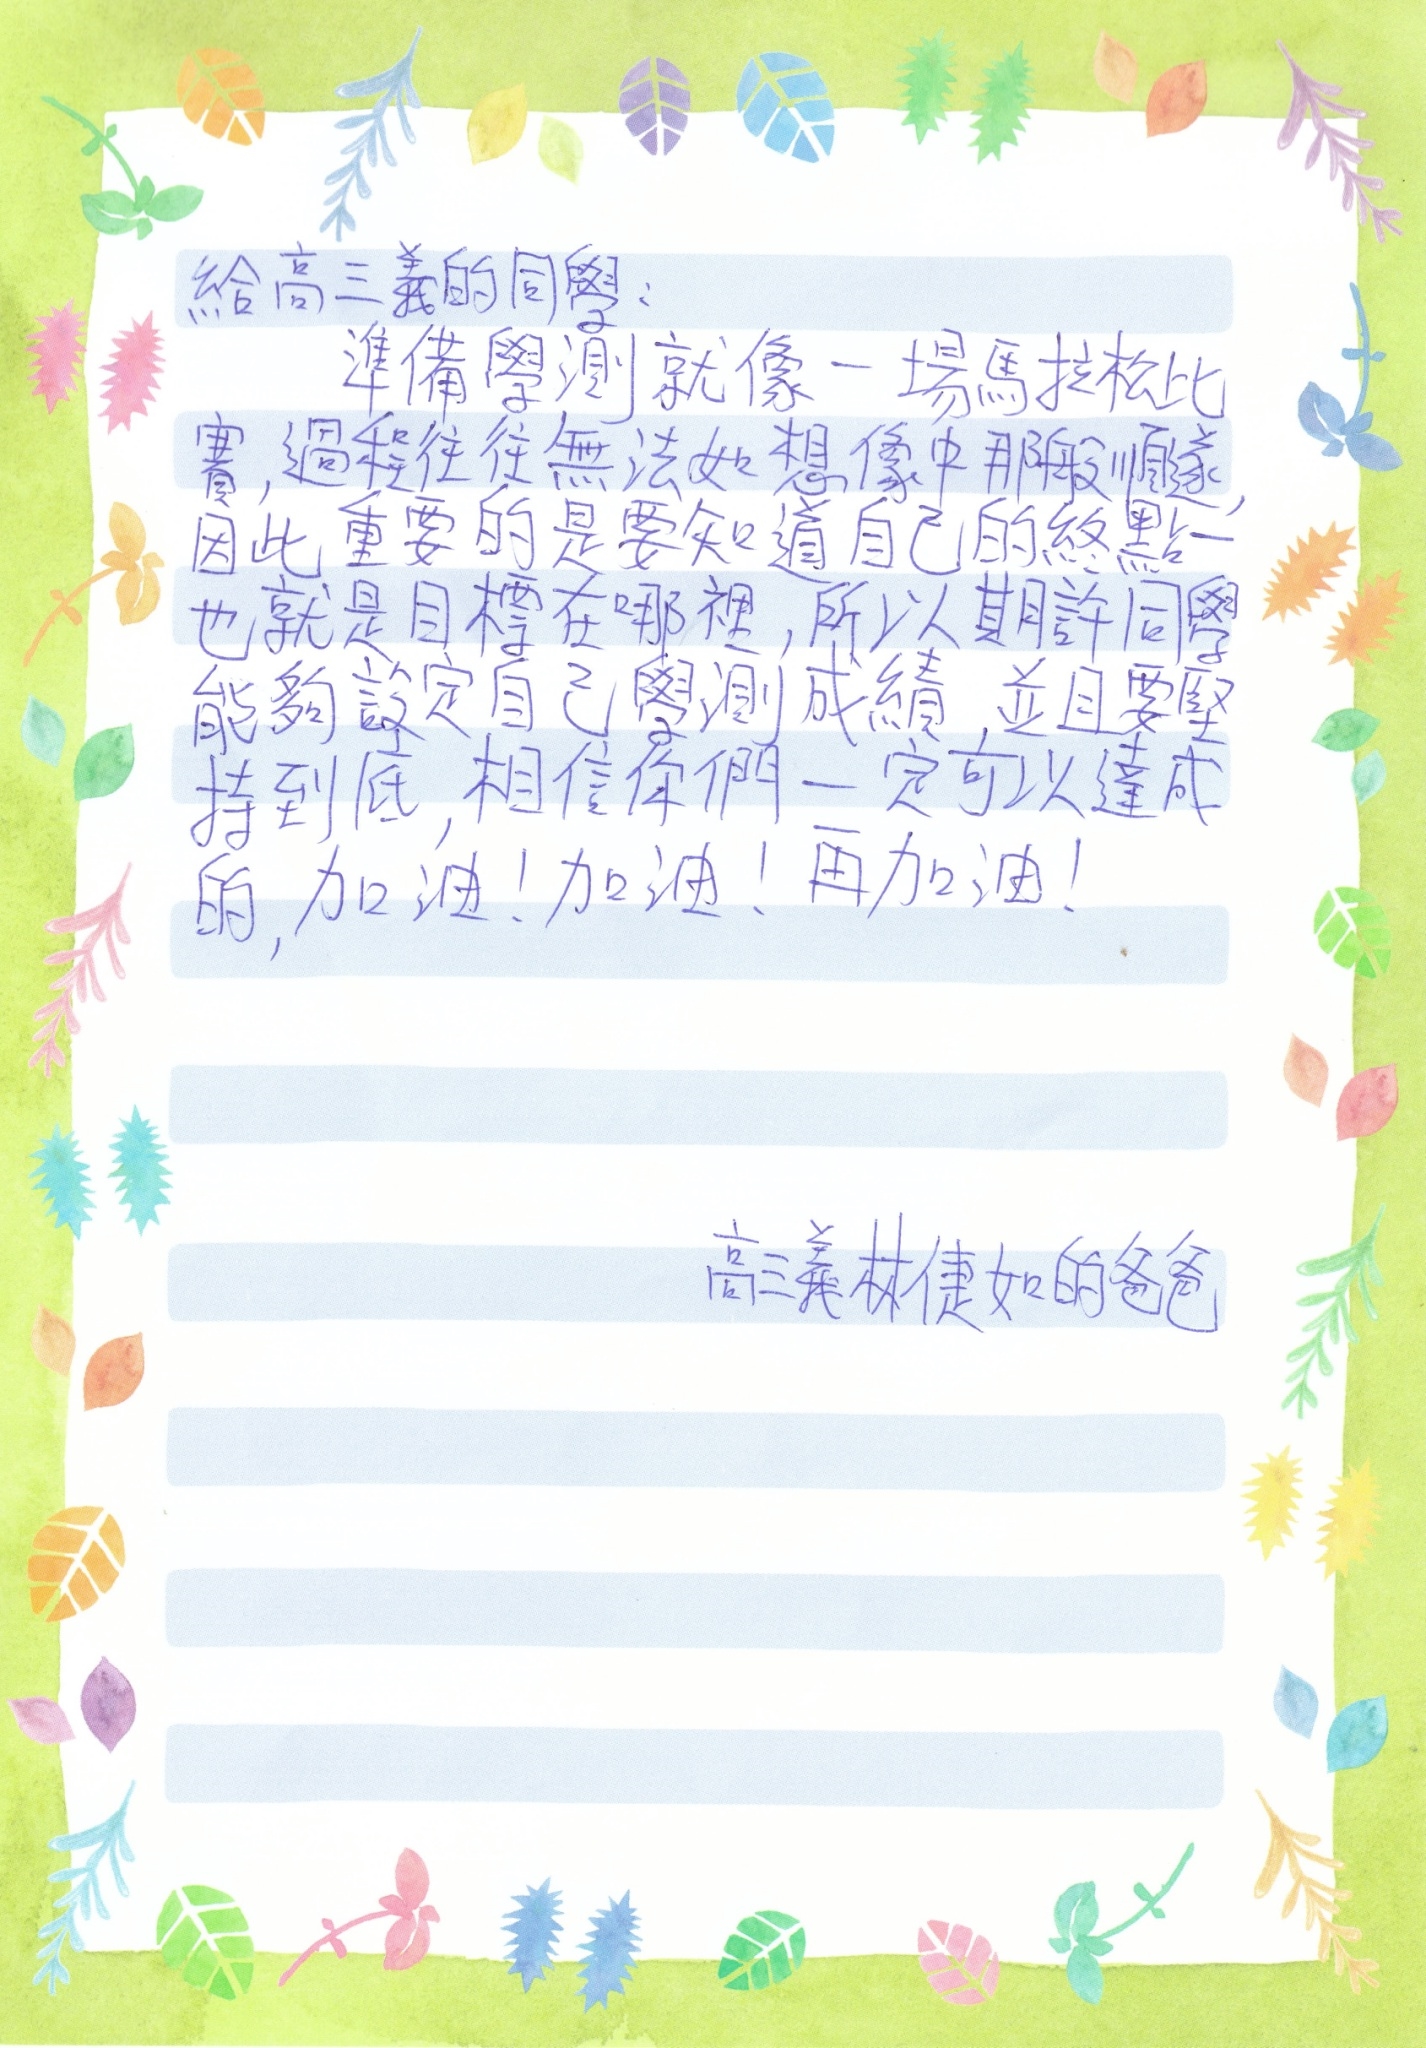 給高三義的同學：
準備學測就像一場馬拉松比
賽,過程往往無法如想像中那般順遂,
因此重要的是要知道自己的終點—
也就是目標在哪裡,所以期許同學
能夠設定自己學測成績,並且要堅
持到底,相信你們一定可以達成
的,加油!加油!再加油!
高三義林倢如的爸爸